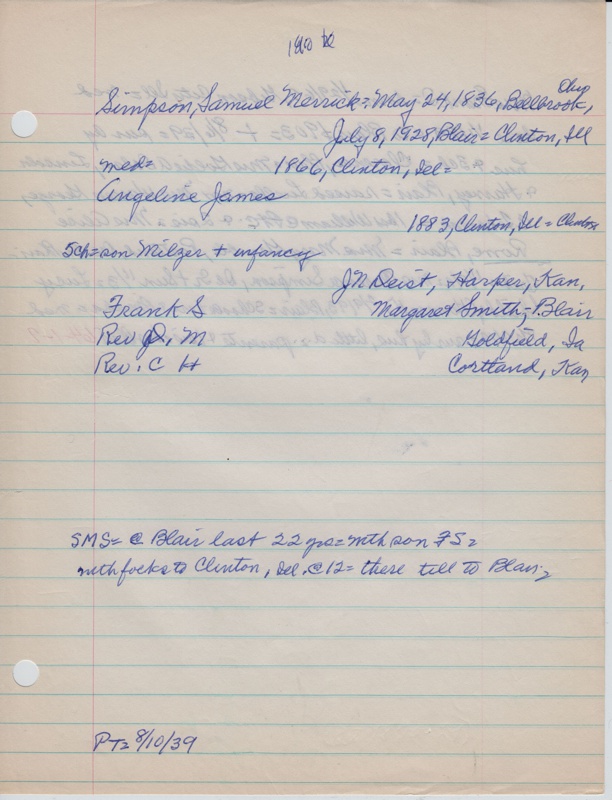 Ohio
Simpson, Samuel Merrick = May 24, 1836, Bellbrook,
July 8, 1928, Blair = Clinton, Ill
med= 1866, Clinton, Ill =
Angeline James
1883, Clinton, Ill = Clinton
5ch = son Milzer + infancy
J N Deist, Harper, Kan,
Frank S Margaret Smith, Blair
Rev J. M Goldfield, Ia
Rev. C H Cortland, Kan
SMS = @ Blair last 22 yrs = with son FS =
with focks to Clinton, Ill. @ 12 = there till to Blair,
PT = 8/10/39